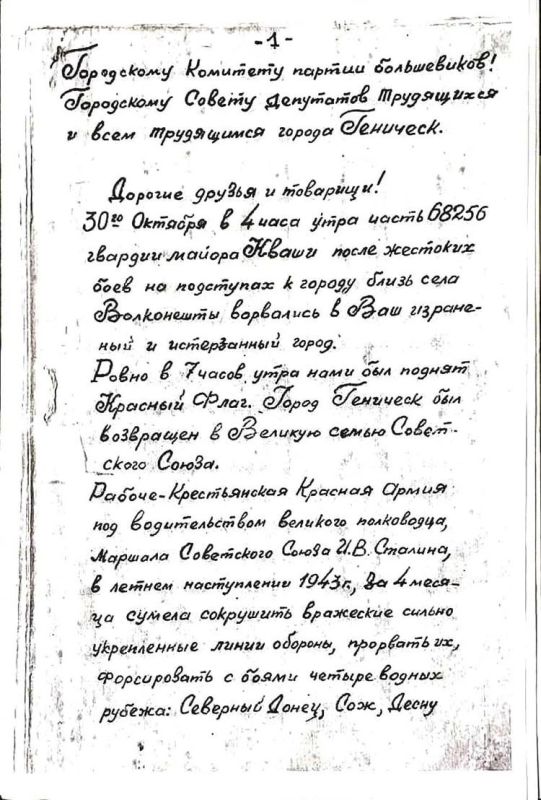 -1-
Городскому Комитету партии большевиков!
Городскому Совету Депутатов Трудящихся
и всем трудящимся города Геническ.
Дорогие друзья и товарищи!
30го Октября в 4 часа утра часть 68256
гвардии майора Кваши после жестоких
боев на подступах к городу близь села
Волконешты ворвались в Ваш изране-
ный и истерзанный город.
Ровно в 7 часов утра нами был поднят
Красный Флаг. Город Геническ был
возвращен в Великую семью Совет-
ского Союза.
Рабоче-Крестьянская Красная Армия
под водительством великого полководца,
Маршала Советского Союза И.В. Сталина,
в летнем наступлении 1943 г., за 4 меся-
ца сумела сокрушить вражеские сильно
укрепленные линии обороны, прорвать их,
форсировать с боями четыре водных
рубежа: Северный Донец, Сож, Десну